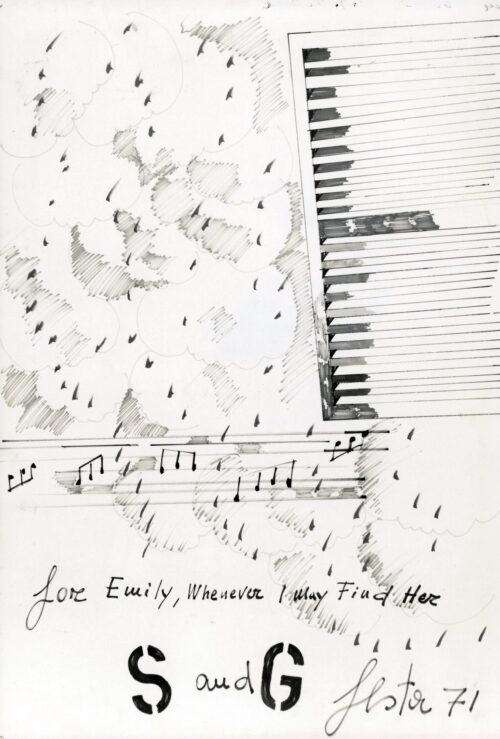 for Emily, Whenever I May Find Her
S and G
71